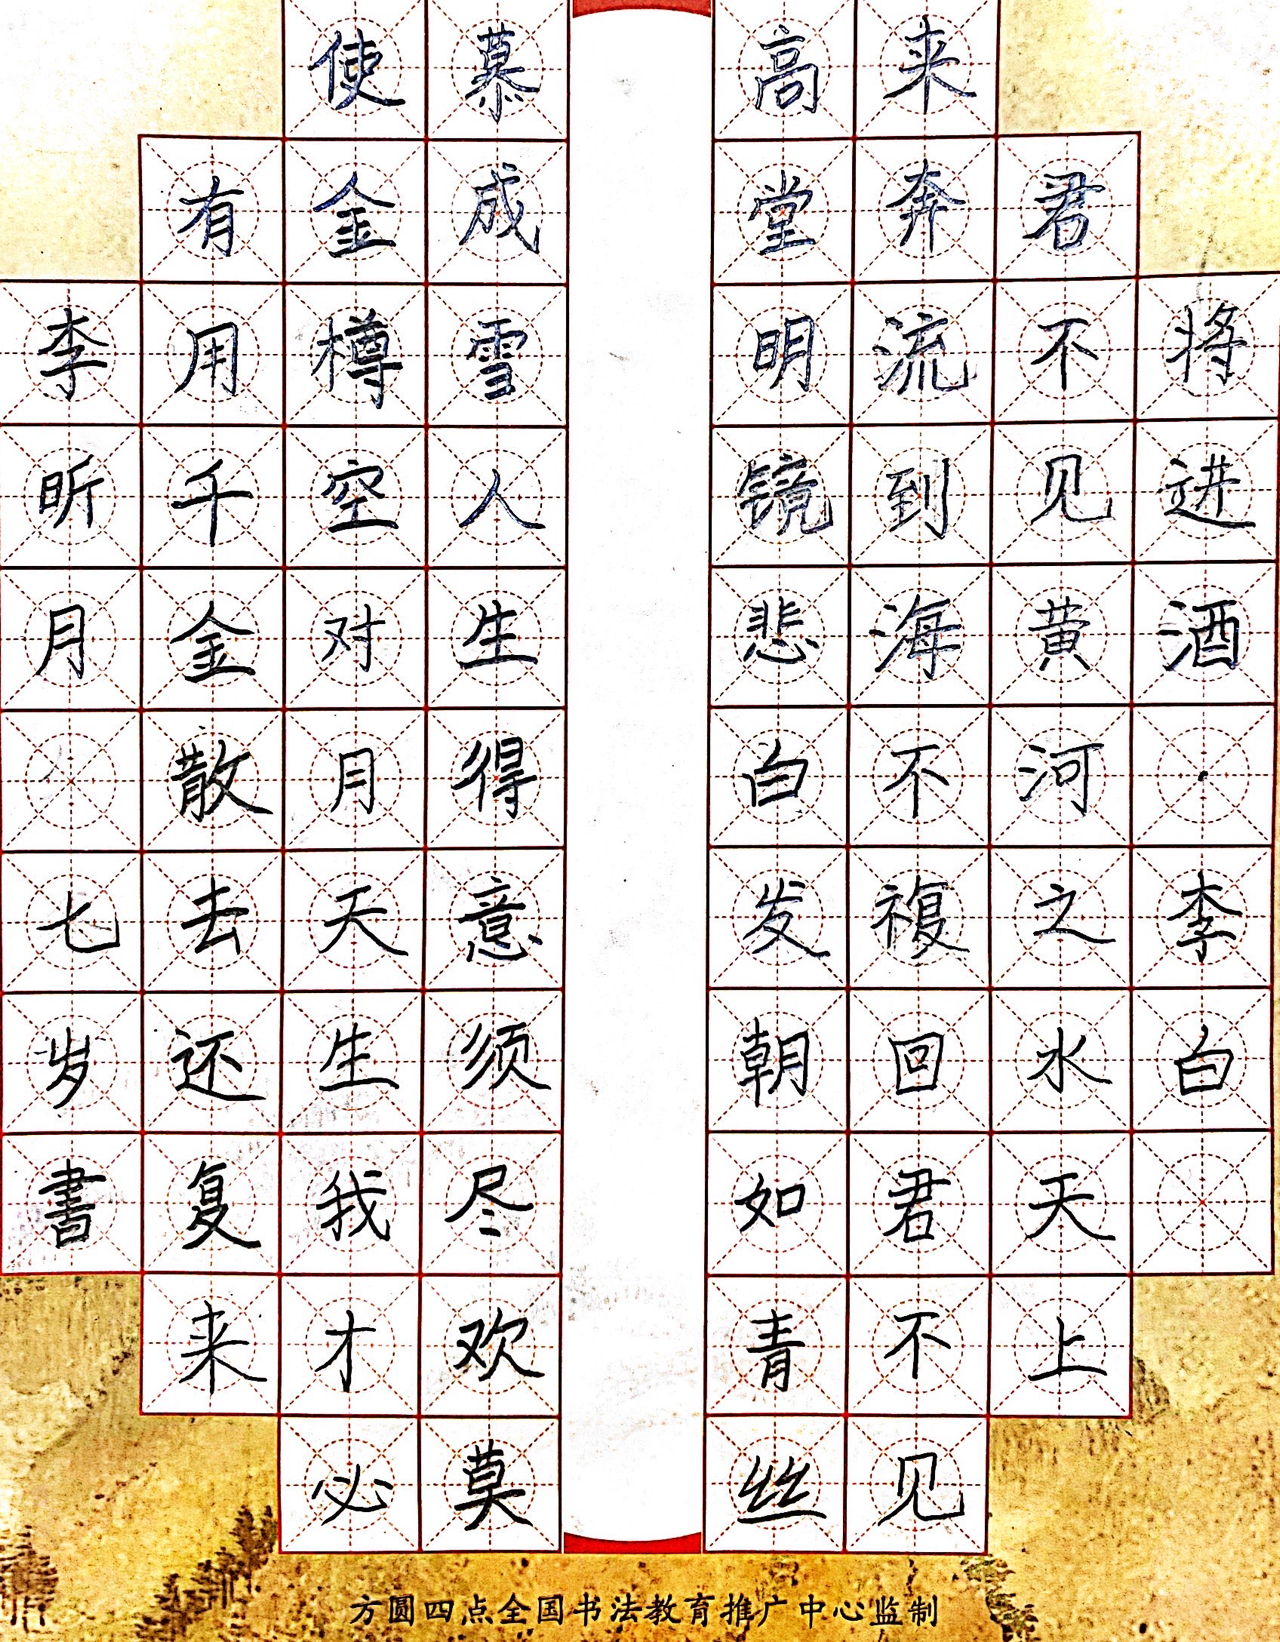 将进酒·李白
君不见黄河之水天上
来奔流到海不複回君不见
高堂明镜悲白发朝如青丝
慕成雪人生得意须尽欢莫
使金樽空对月天生我才必
有用千金散去还复来
李昕月 七岁書
方圆四点全国书法教育推广中心监制